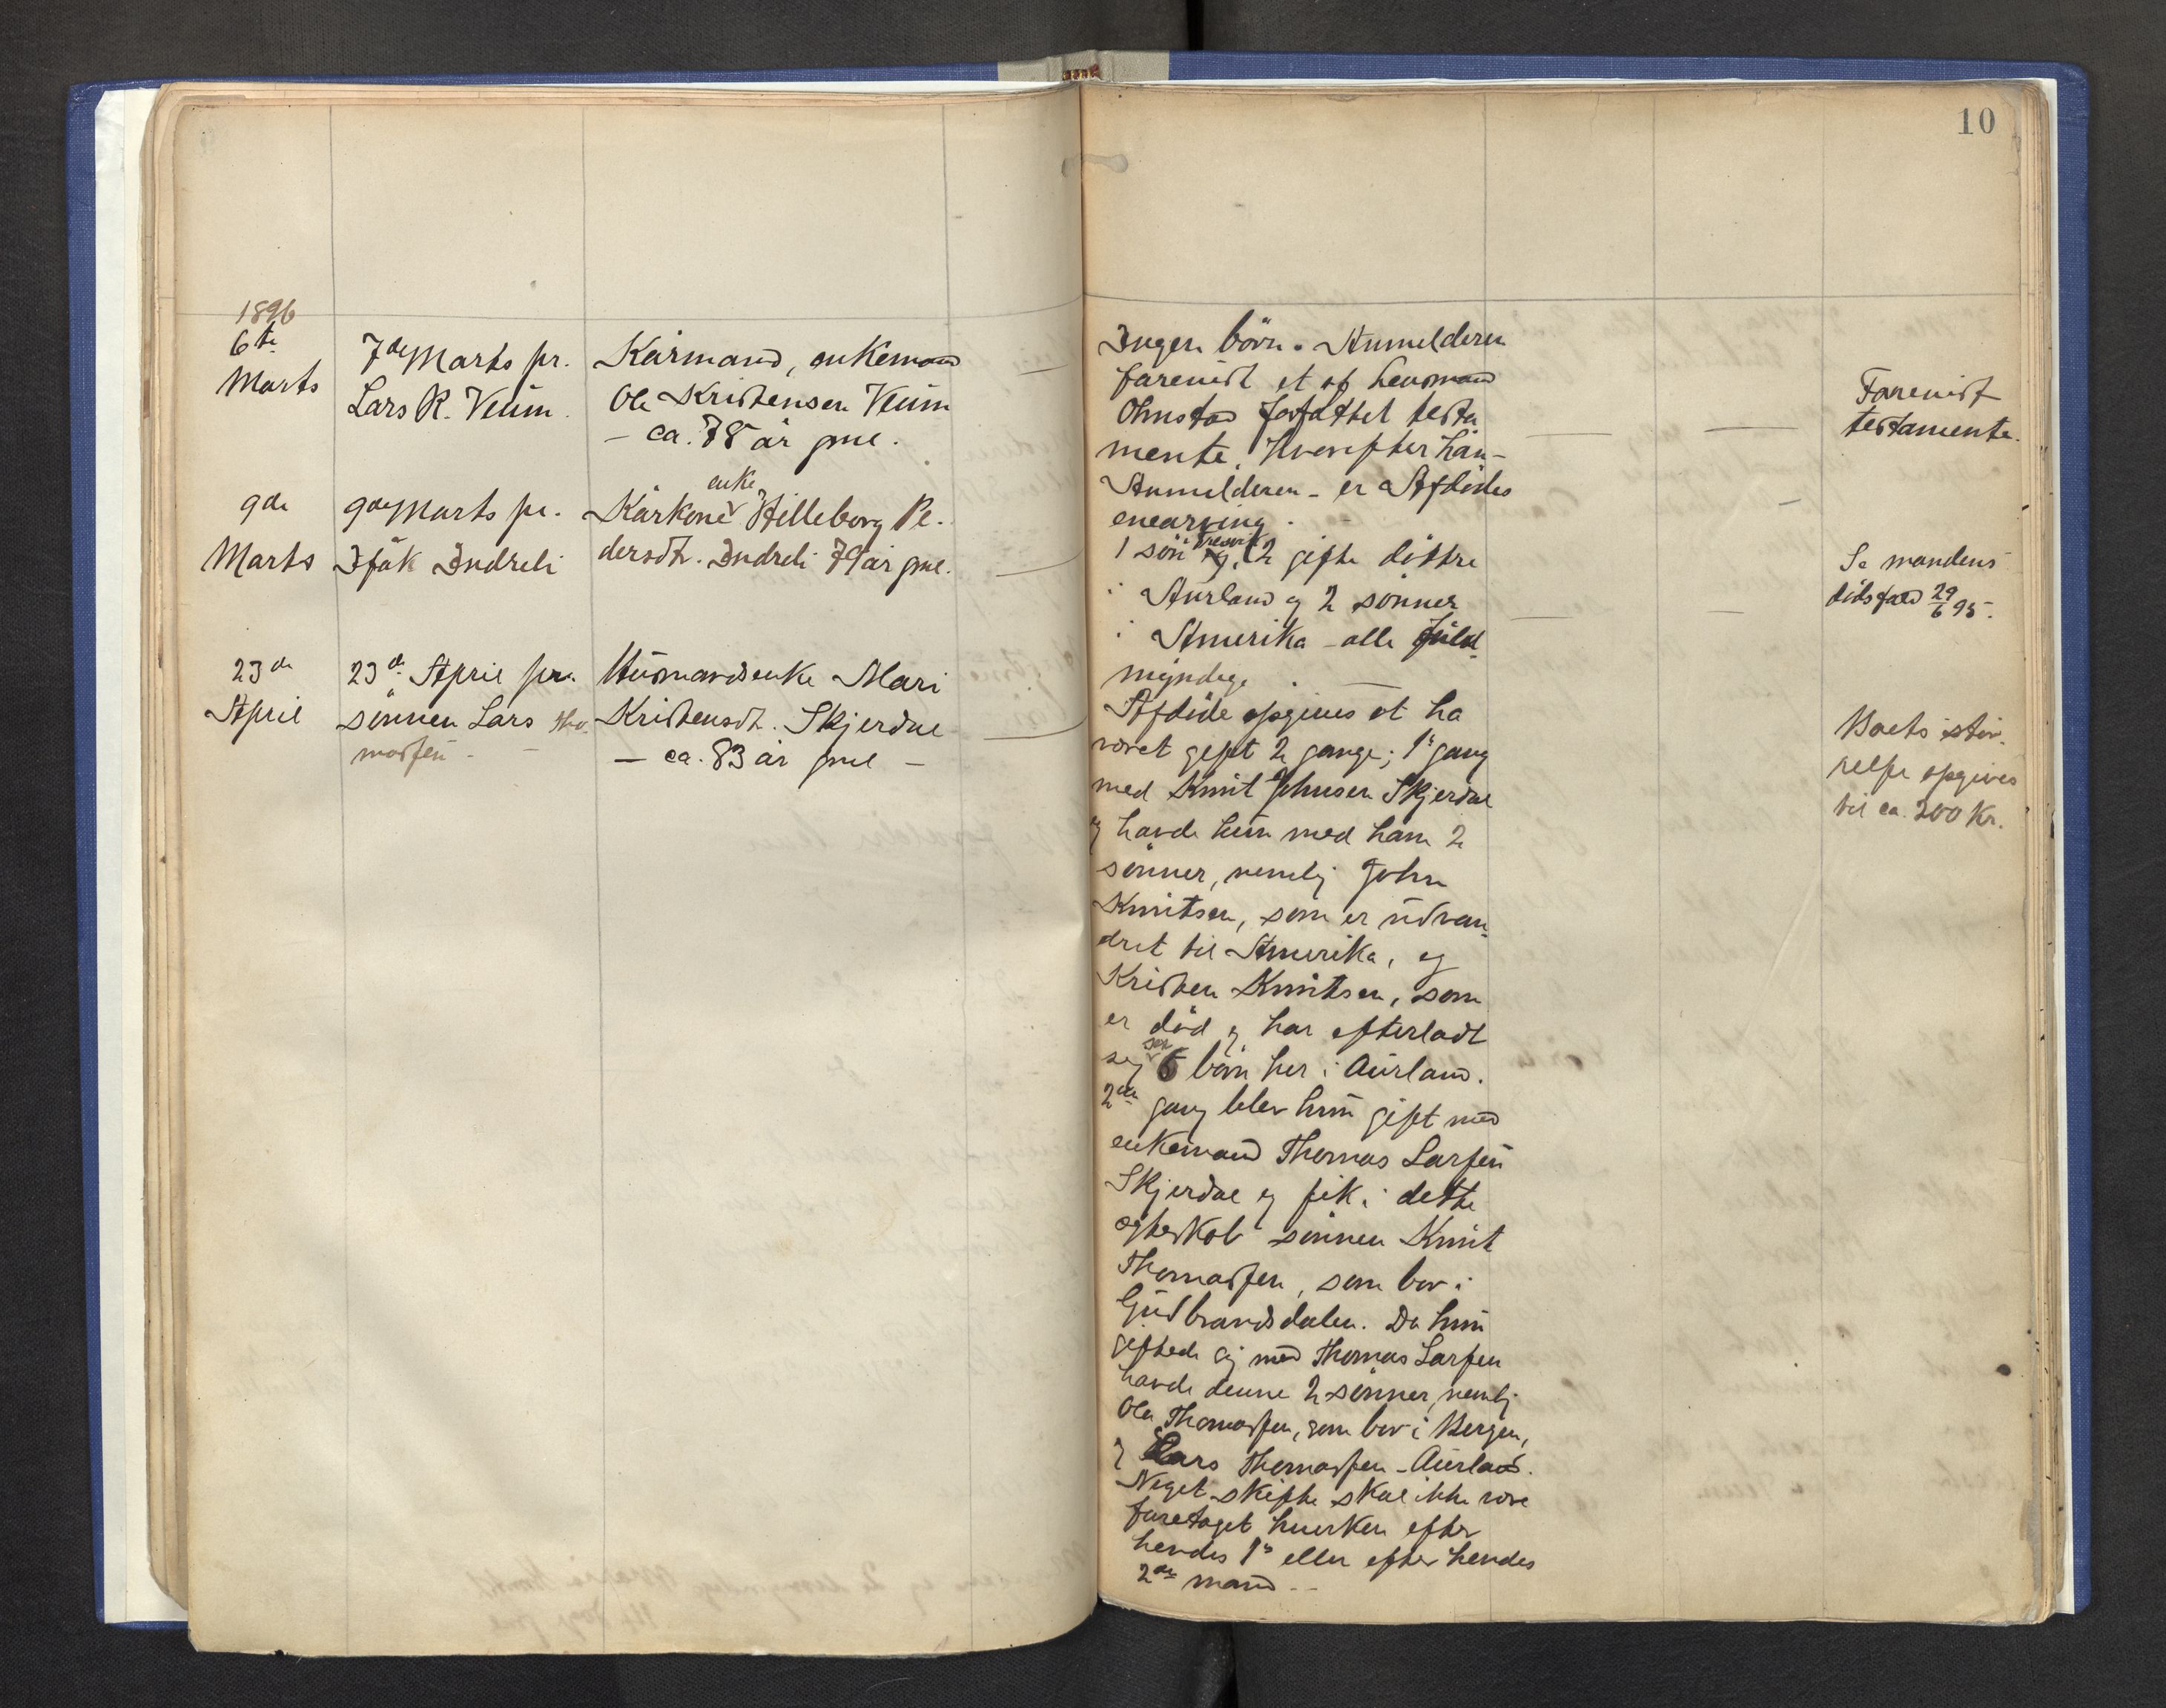 10
1896
6te
Marts
7de Marts pr.
Lars K. Veum.
Kårmand, enkemand
Ole Kristensen Veum
– ca. 78 år gml.
Ingen börn. Anmelderen
forevist et af lensmand
Ohnstad forfattet testa
mente, hvorefter han –
Anmelderen – er Afdödes
enearving.
Forevist
testamente.
9de
Marts
9de Marts pr.
Isak Indreli
enke
Kårkone Hilleborg Pe-
dersdt. Indreli 79 år gml.
1 sön, 2 gifte döttre
i Aurland og 2 sönner
i Amerika – alle fuld-
myndige.
Se mandens
dödsfald 29/6 95.
23de
April
23de April pr.
sönnen Lars Tho-
massen –
Husmandsenke Mari
Kristensdt. Skjerdal
– ca. 83 år gml –
Afdöde opgives at ha
været gift 2 gange; 1ste gang
med Knut Johnsen Skjerdal
og havde hun med ham 2
sönner, nemlig John
Knutsen, som er udvan-
dret til Amerika, og
Kristen Knutsen, som
er död og har efterladt
sex
sig 6 börn her i Aurland.
2den gang blev hun gift med
enkemand Thomas Larsen
Skjerdal og fik i dette
ægteskab sönnen Knut
Thomassen, som bor i
Gudbrandsdalen. Da hun
giftede sig med Thomas Larsen
havde denne 2 sönner, nemlig
Ole Thomassen, som bor i Bergen,
og Lars Thomassen – Aurland.
Noget skifte skal ikke være
foretaget hverken efter
hendes 1ste eller efter hendes
2den mand –
Boets stör-
relse opgives
til ca. 200 Kr.